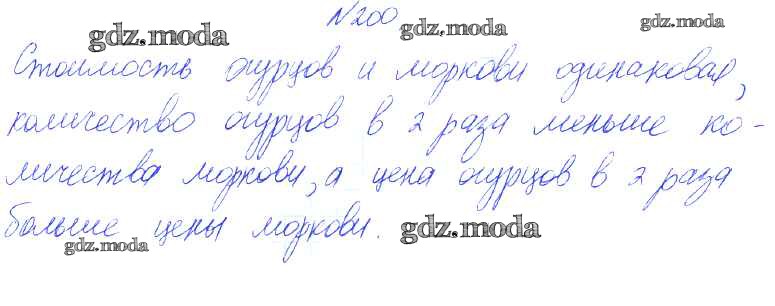 №200
gdz.moda gdz.moda gdz.moda
Стоимость огурцов и моркови одинаковая,
количество огурцов в 2 раза меньше ко-
личества моркови, а цена огурцов в 2 раза
больше цены моркови. gdz.moda
gdz.moda